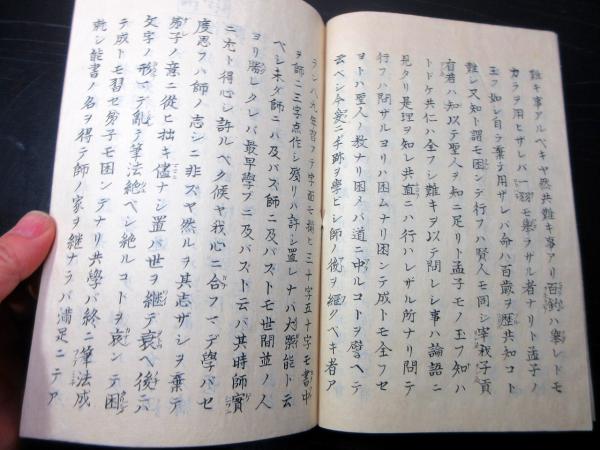 難キ事アルベキヤ然共難キ事アリ百鈞ハ擧レドモ
力ラヲ用ヒザレバ一羽モ擧ヲザル者ナリト孟子ノ
玉フ如レ自ラ棄テ用ザレバ命ハ百歳ヲ歴共知コト
難シ又知ト謂モ困ンデ行フハ賢人モ同シ宰我子貢
有若ハ知以テ聖人ヲ知ニ足リト孟子モノ玉フ知ハ
トドケ共仁ハ全フシ難キヲ以テ問レシ事ハ論語ニ
見タリ是理ヲ知レ共直ニハ行ハレザル所ナリ問テ
行フハ問ザルヨリハ困ムナリ困ンデ成トモ全フセ
ヨトハ聖人ノ教ナリ困メバ道ニ中ルコトヲ譬ヘテ
云ベシ今爰ニ手跡ヲ學ビシ師ノ後ヲ継クベキ者ア
ランハ九年習フテ字面モ揃ヒ三十字五十字モ書中
ヲ師ニ三字点作シ残リハ許シ置レナバ対照能ト云
ベシ未ダ師ニハ及バズ師ニ及バズトモ世間並ノ人
ヨリ勝レタレバ最早學ブニ及バズト云バ其時師實
ニ尤ト得心シ許ルベク候ヤ我心ニ合フマデ學バセ
度思フハ師ノ志シニ非ズヤ然ルヲ其志ザシヲ棄テ
弟子ノ意ニ從ヒ拙キ儘ナシ置バ世ヲ継デ衰ヘ後ニハ
文字ノ形マデ亂テ筆法絶ベシ絶ルコトヲ哀ンデ困
テ成トモ習セ弟子モ困ンデナリ共學バ終ニ筆法成
就シ能書ノ名ヲ得テ師ノ家ヲ継ナラバ満足ニテア